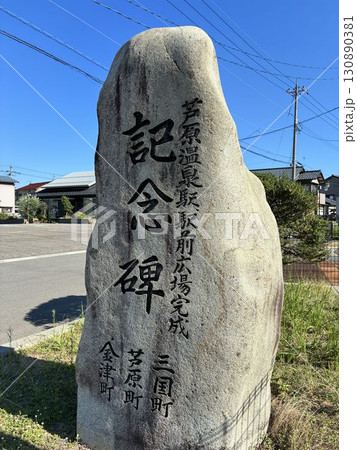 芦原温泉駅駅前広場完成
記念碑
三国町
芦原町
金津町
PIXTA
130890381